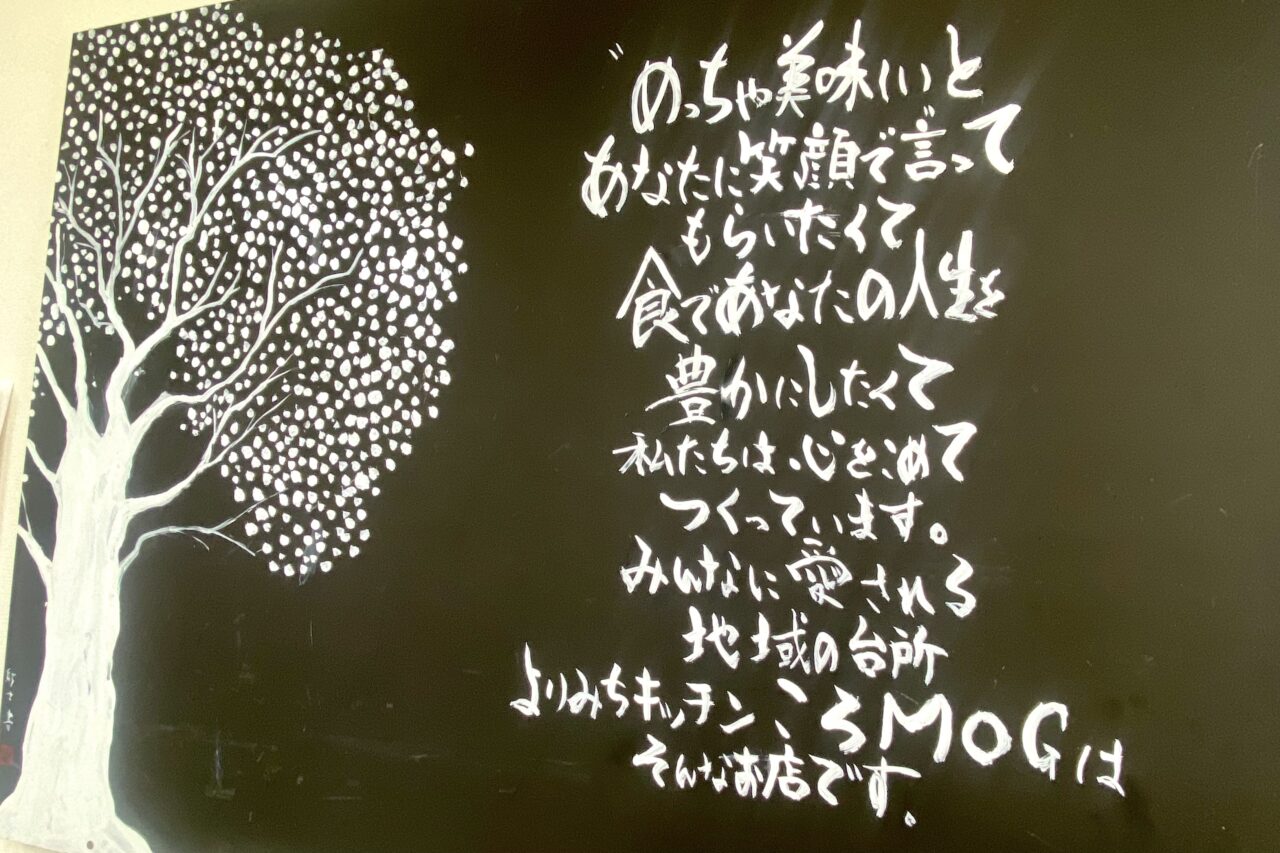 "めっちゃ美味いいと
あなたに笑顔で言って
もらいたくて
食であなたの人生を
豊かにしたくて
私たちは、心を込めて
つくっています。
みんなに愛される
地域の台所
よりみちキッチン、ころMOGは
そんなお店です。